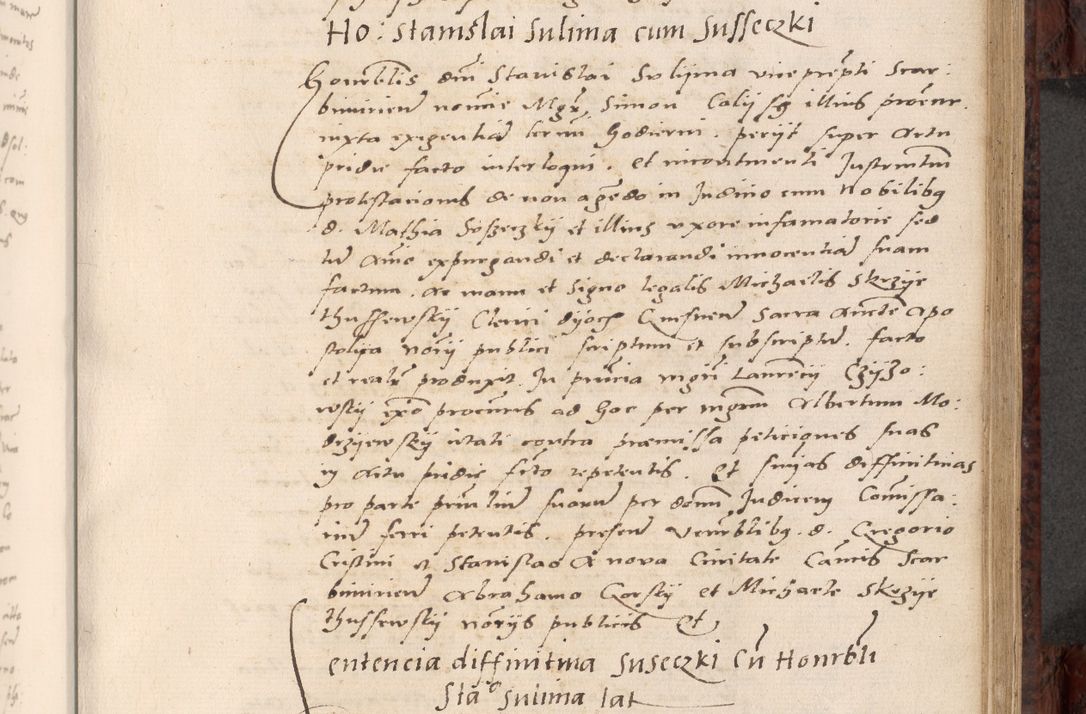 Ho: Stanislai Sulima cum Susseczki
Honrblis dni Stanislai Sulijma viceprępti Scar:
bimirien nomine Mgr Simon Calij sg illius procur.
iuxta exigentiā termi hodierni. perijt super Actu
pridie facto interloqui. Et incontinenti Instrumtm
protestacionis de non agēdo in Iudicio cum Nobilibq
d. Mathia Soszeczkij et illius uxore infamatorie sed
tm Aīmo expurgandi et declarandi innocentiā suam
factum. Ac manu et Signo legalis Michaelis Skrzije
thussewskij Clerici dijocs Gnesnen Sacra Aucte Apo
stolija Norij publici scriptum et subscriptū. facto
et realr produxit. In prncia mgri Laurencij Czijzo:
wskij exo procuris ad hoc per mgrm Albertum Mo:
drzijewskij citati contra præmissa peticiones suas
in Actu pridie fcto repetentis. Et sniās diffinitiuas
pro parte prinlium suorum per domm Iudicem Comissa:
rium ferri petentis. presen Venrblibq. d. Gregorio
Cristini et Stanislao A nova Civitate Cancis Scar
bimirien Abrahamo Gorskij et Michaele Skrzije
thussewskij norijs publicis Et
entencia diffinitiua Suseczki Cū Honrbli
Sta° Sulima lat